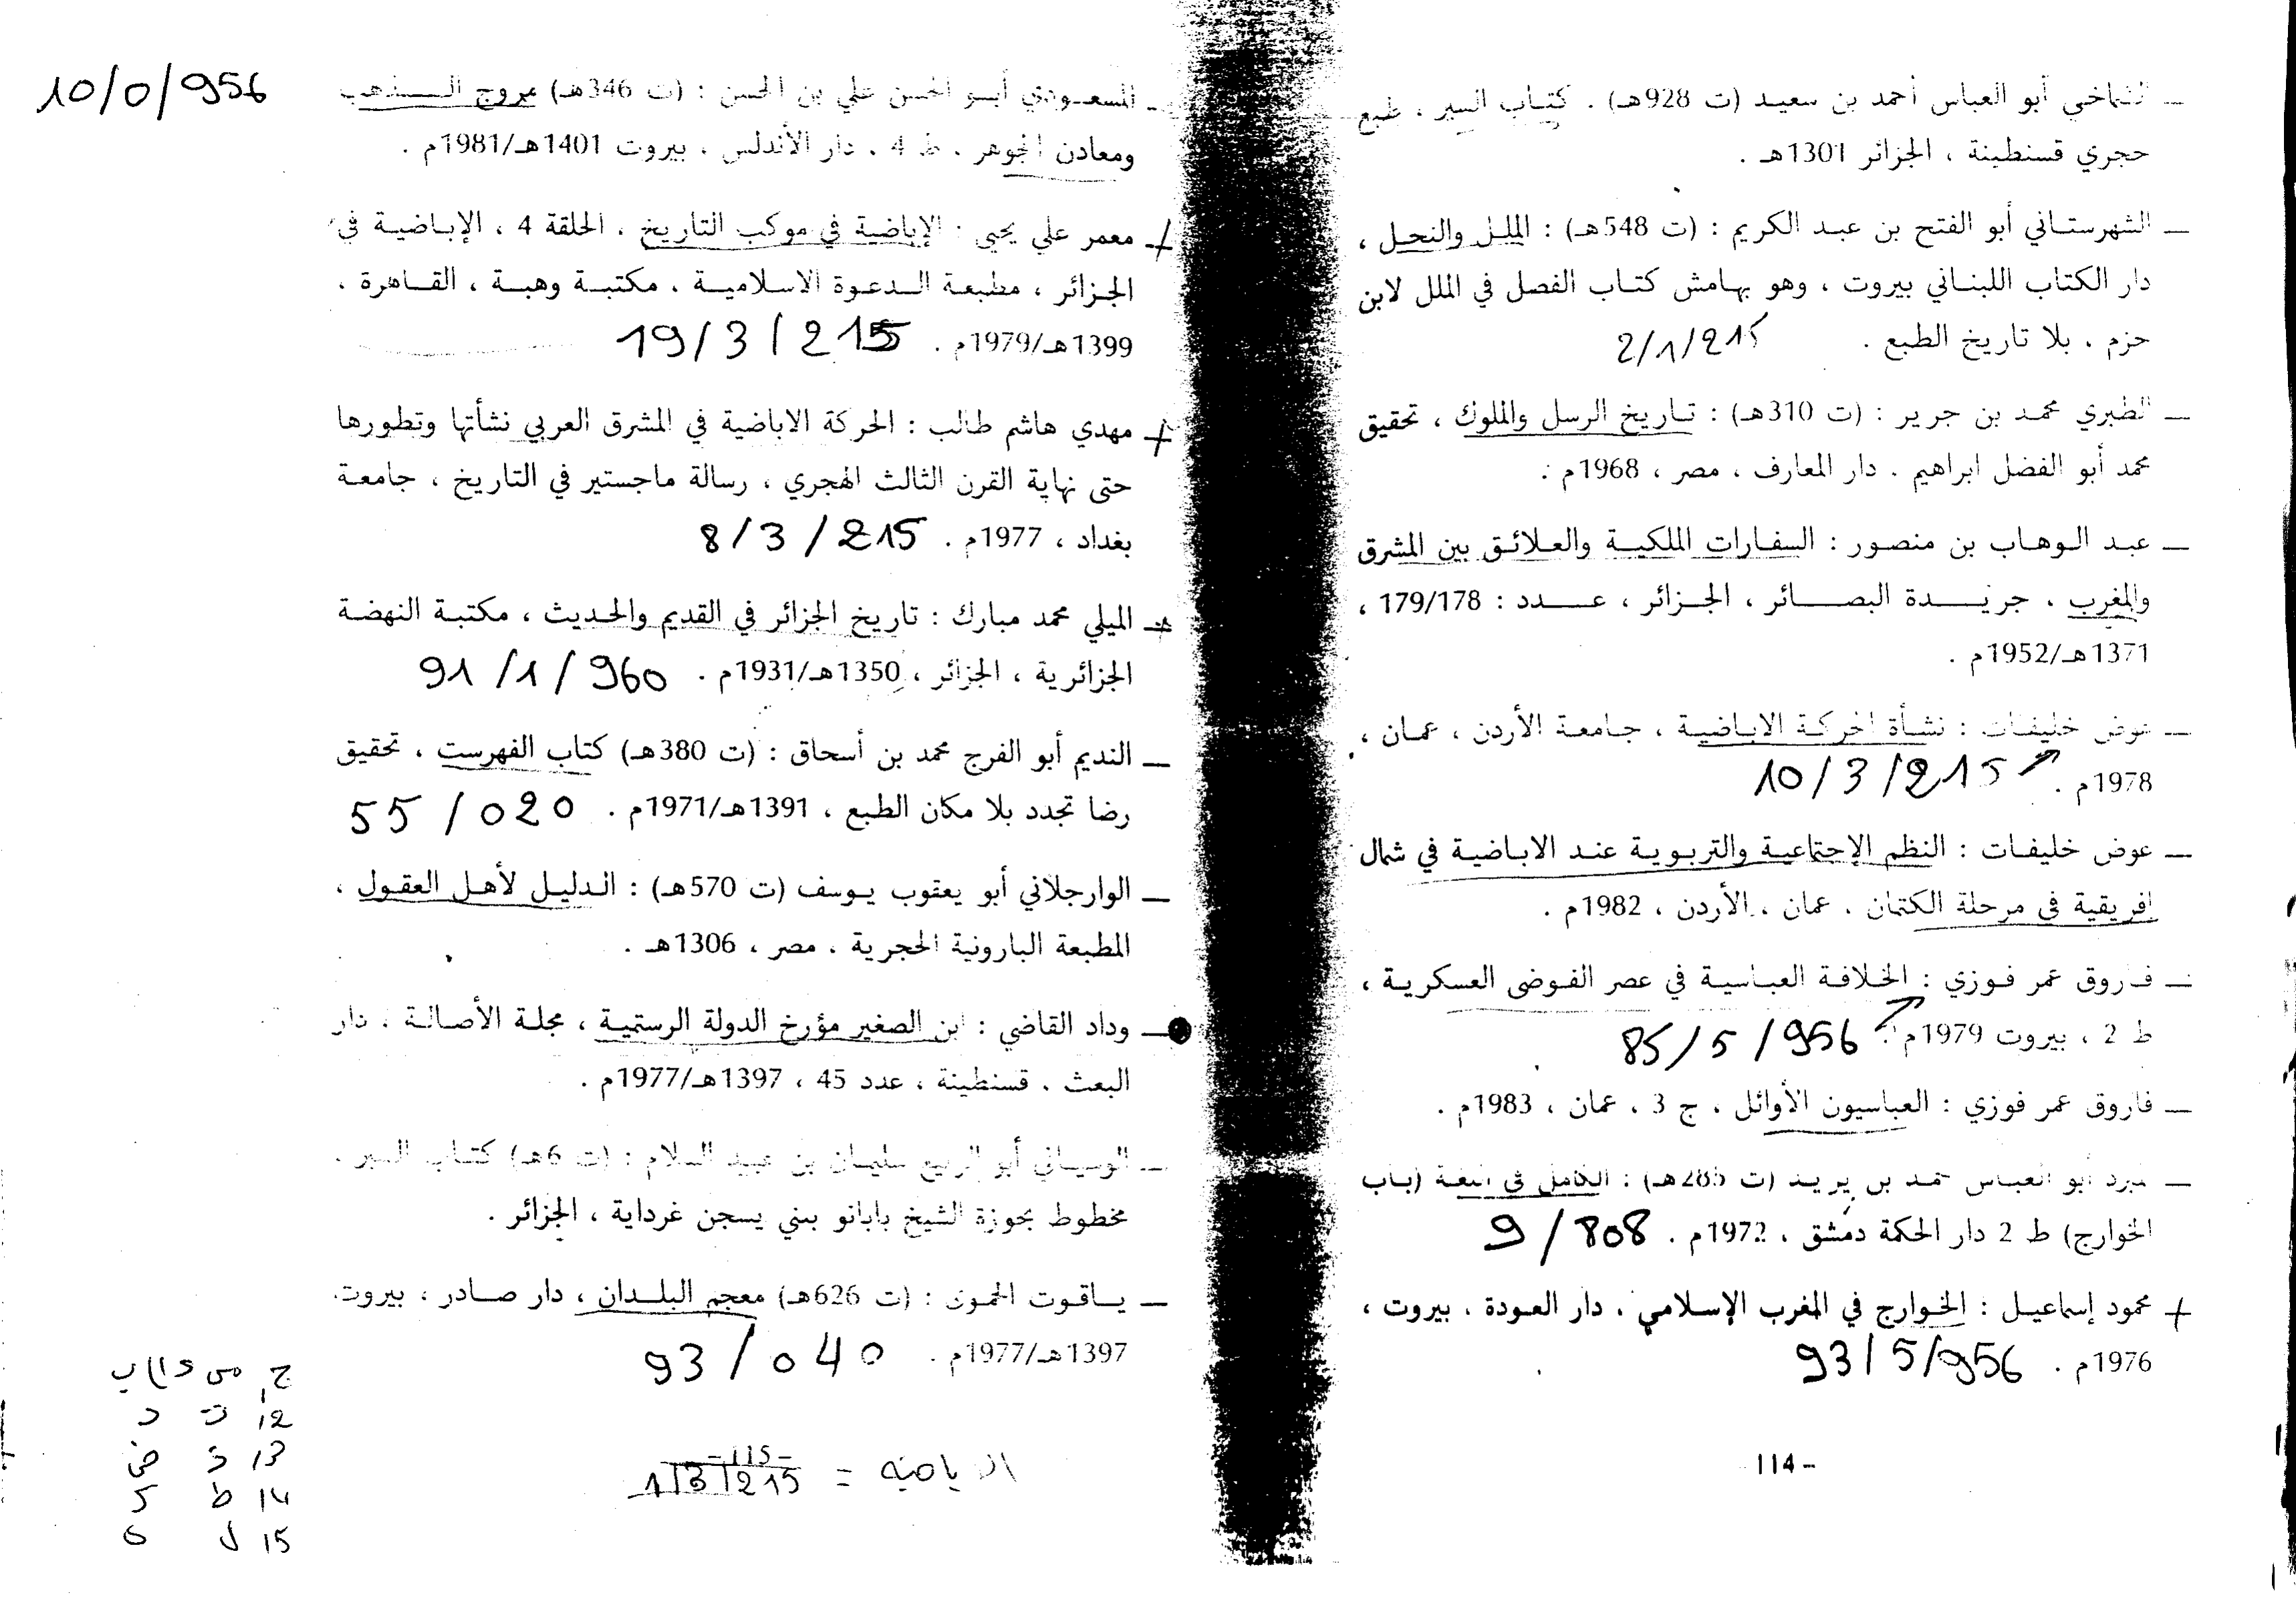 ـ الشماخي أبو العباس أحمد بن سعيد (ت 928هـ) . كتاب السير ، طبع
حجري قسنطينة ، الجزائر 1301هـ .
ـ الشهرستاني أبو الفتح بن عبد الكريم : (ت 548هـ) : الملل والنحل ،
دار الكتاب اللبناني بيروت ، وهو بهامش كتاب الفصل في الملل لابن
حزم ، بلا تاريخ الطبع . 2/1/215
ـ الطبري محمد بن جرير : (ت 310هـ) : تاريخ الرسل والملوك ، تحقيق
محمد أبو الفضل ابراهيم . دار المعارف ، مصر ، 1968م .
ـ عبد الوهاب بن منصور : السفارات الملكية والعلائق بين المشرق
والمغرب ، جريدة البصائر ، الجزائر ، عدد : 179/178 ،
1371هـ/1952م .
ـ عوض خليفات : نشأة الحركة الاباضية ، جامعة الأردن ، عمان ،
1978م . 10/3/215
ـ عوض خليفات : النظم الإجتماعية والتربوية عند الاباضية في شمال
افريقية في مرحلة الكتمان ، عمان ، الأردن ، 1982م .
ـ فاروق عمر فوزي : الخلافة العباسية في عصر الفوضى العسكرية ،
ط 2 ، بيروت 1979م . 85/5/956
ـ فاروق عمر فوزي : العباسيون الأوائل ، ج 3 ، عمان ، 1983م .
ـ مبرد أبو العباس حمد بن يزيد (ت 285هـ) : الكامل في اللغة (باب
الخوارج) ط 2 دار الحكمة دمشق ، 1972م . 9/808
+ محمود إسماعيل : الخوارج في المغرب الإسلامي ، دار العودة ، بيروت ،
1976م . 93/5/956
114 -
10/0/956
ـ المسعودي أبو الحسن علي بن الحسن : (ت 346هـ) مروج الذهب
ومعادن الجوهر ، ط 4 ، دار الأندلس ، بيروت 1401هـ/1981م .
+ معمر علي يحيي : الإباضية في موكب التاريخ ، الحلقة 4 ، الإباضية في
الجزائر ، مطبعة الدعوة الاسلامية ، مكتبة وهبة ، القاهرة ،
1399هـ/1979م . 19/3/215
+ مهدي هاشم طالب : الحركة الاباضية في المشرق العربي نشأتها وتطورها
حتى نهاية القرن الثالث الهجري ، رسالة ماجستير في التاريخ ، جامعة
بغداد ، 1977م . 8/3/215
ـ الميلي محمد مبارك : تاريخ الجزائر في القديم والحديث ، مكتبة النهضة
الجزائرية ، الجزائر ، 1350هـ/1931م . 91/1/960
ـ النديم أبو الفرج محمد بن أسحاق : (ت 380هـ) كتاب الفهرست ، تحقيق
رضا تجدد بلا مكان الطبع ، 1391هـ/1971م . 55/020
ـ الوارجلاني أبو يعقوب يوسف (ت 570هـ) : الدليل لأهل العقول ،
المطبعة البارونية الحجرية ، مصر ، 1306هـ .
ـ وداد القاضي : ابن الصغير مؤرخ الدولة الرستمية ، مجلة الأصالة ، دار
البعث ، قسنطينة ، عدد 45 ، 1397هـ/1977م .
ـ الوسياني أبو الربيع سليمان بن عبد السلام : (ت 6هـ) كتاب السير .
مخطوط بحوزة الشيخ بابانو ببني يسجن غرداية ، الجزائر .
ـ ياقوت الحموي : (ت 626هـ) معجم البلدان ، دار صادر ، بيروت
1397هـ/1977م . 93/040
- 115 -
= 1/3/215
12 ت د
13 ض
14 ط
15